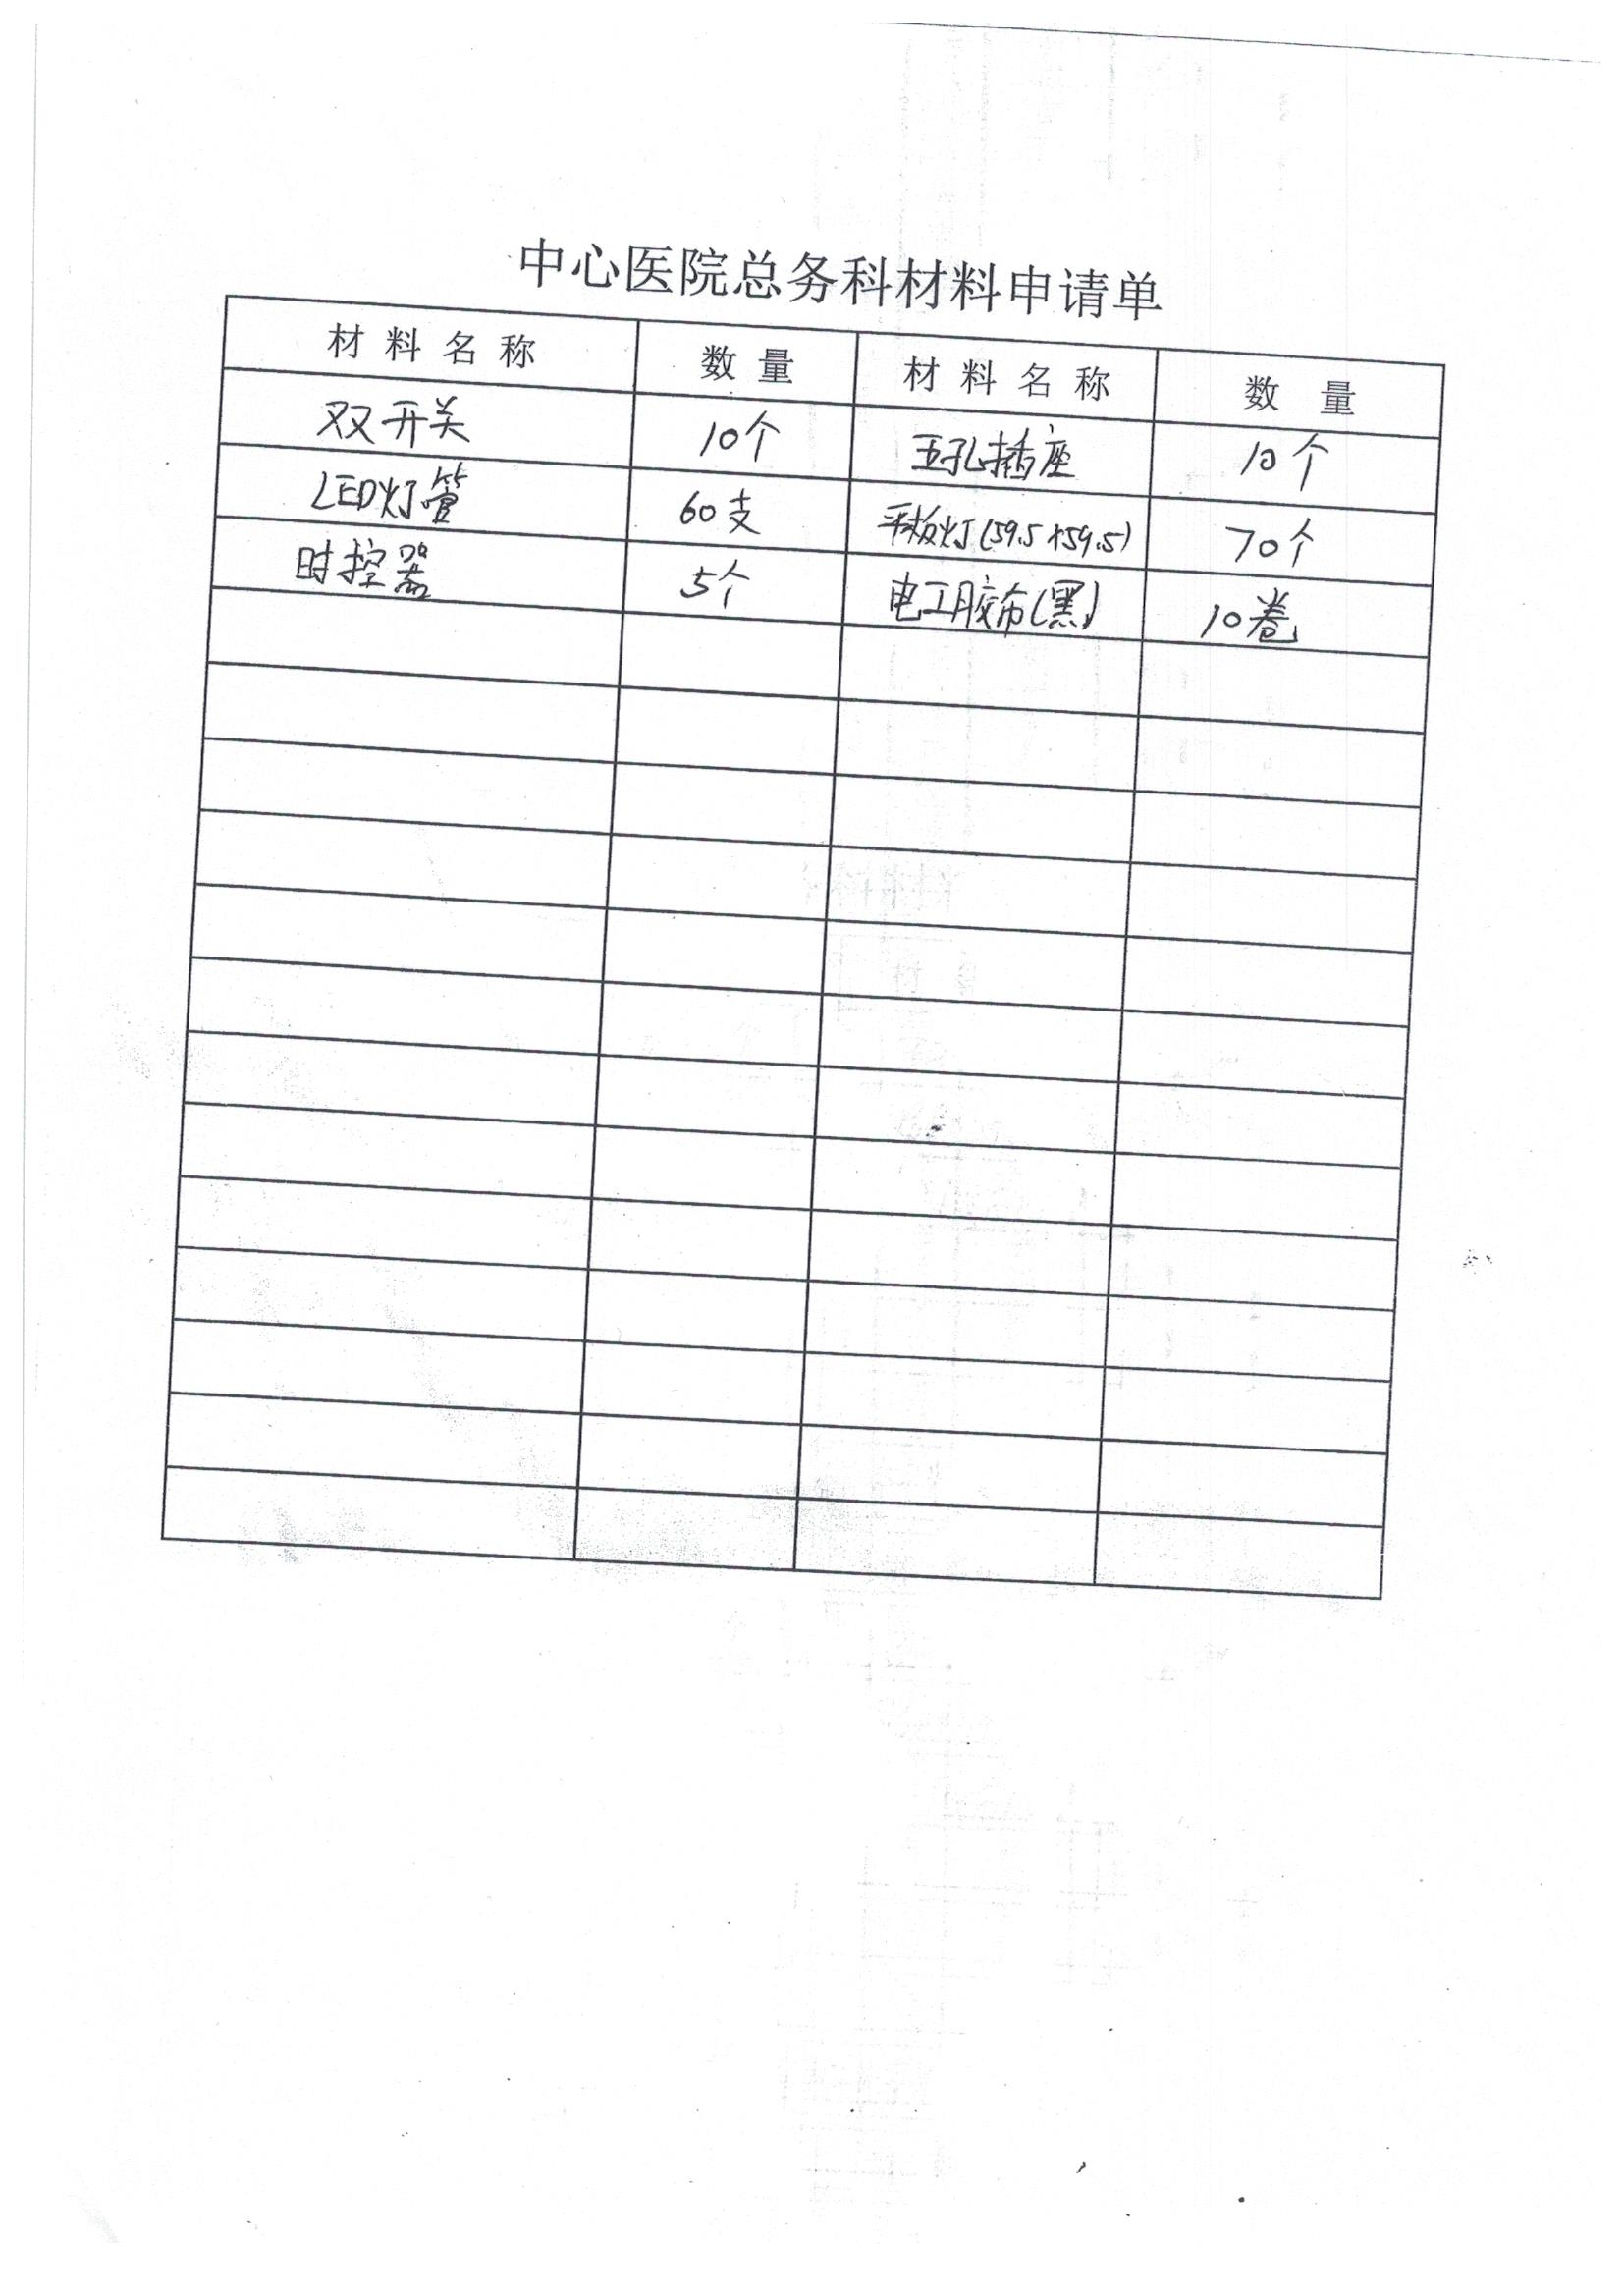 中心医院总务科材料申请单
材料名称 数量 材料名称 数量
双开关 10个 五孔插座 10个
LED灯管 60支 平板灯(59.5×59.5) 70个
时控器 5个 电工胶布(黑) 10卷